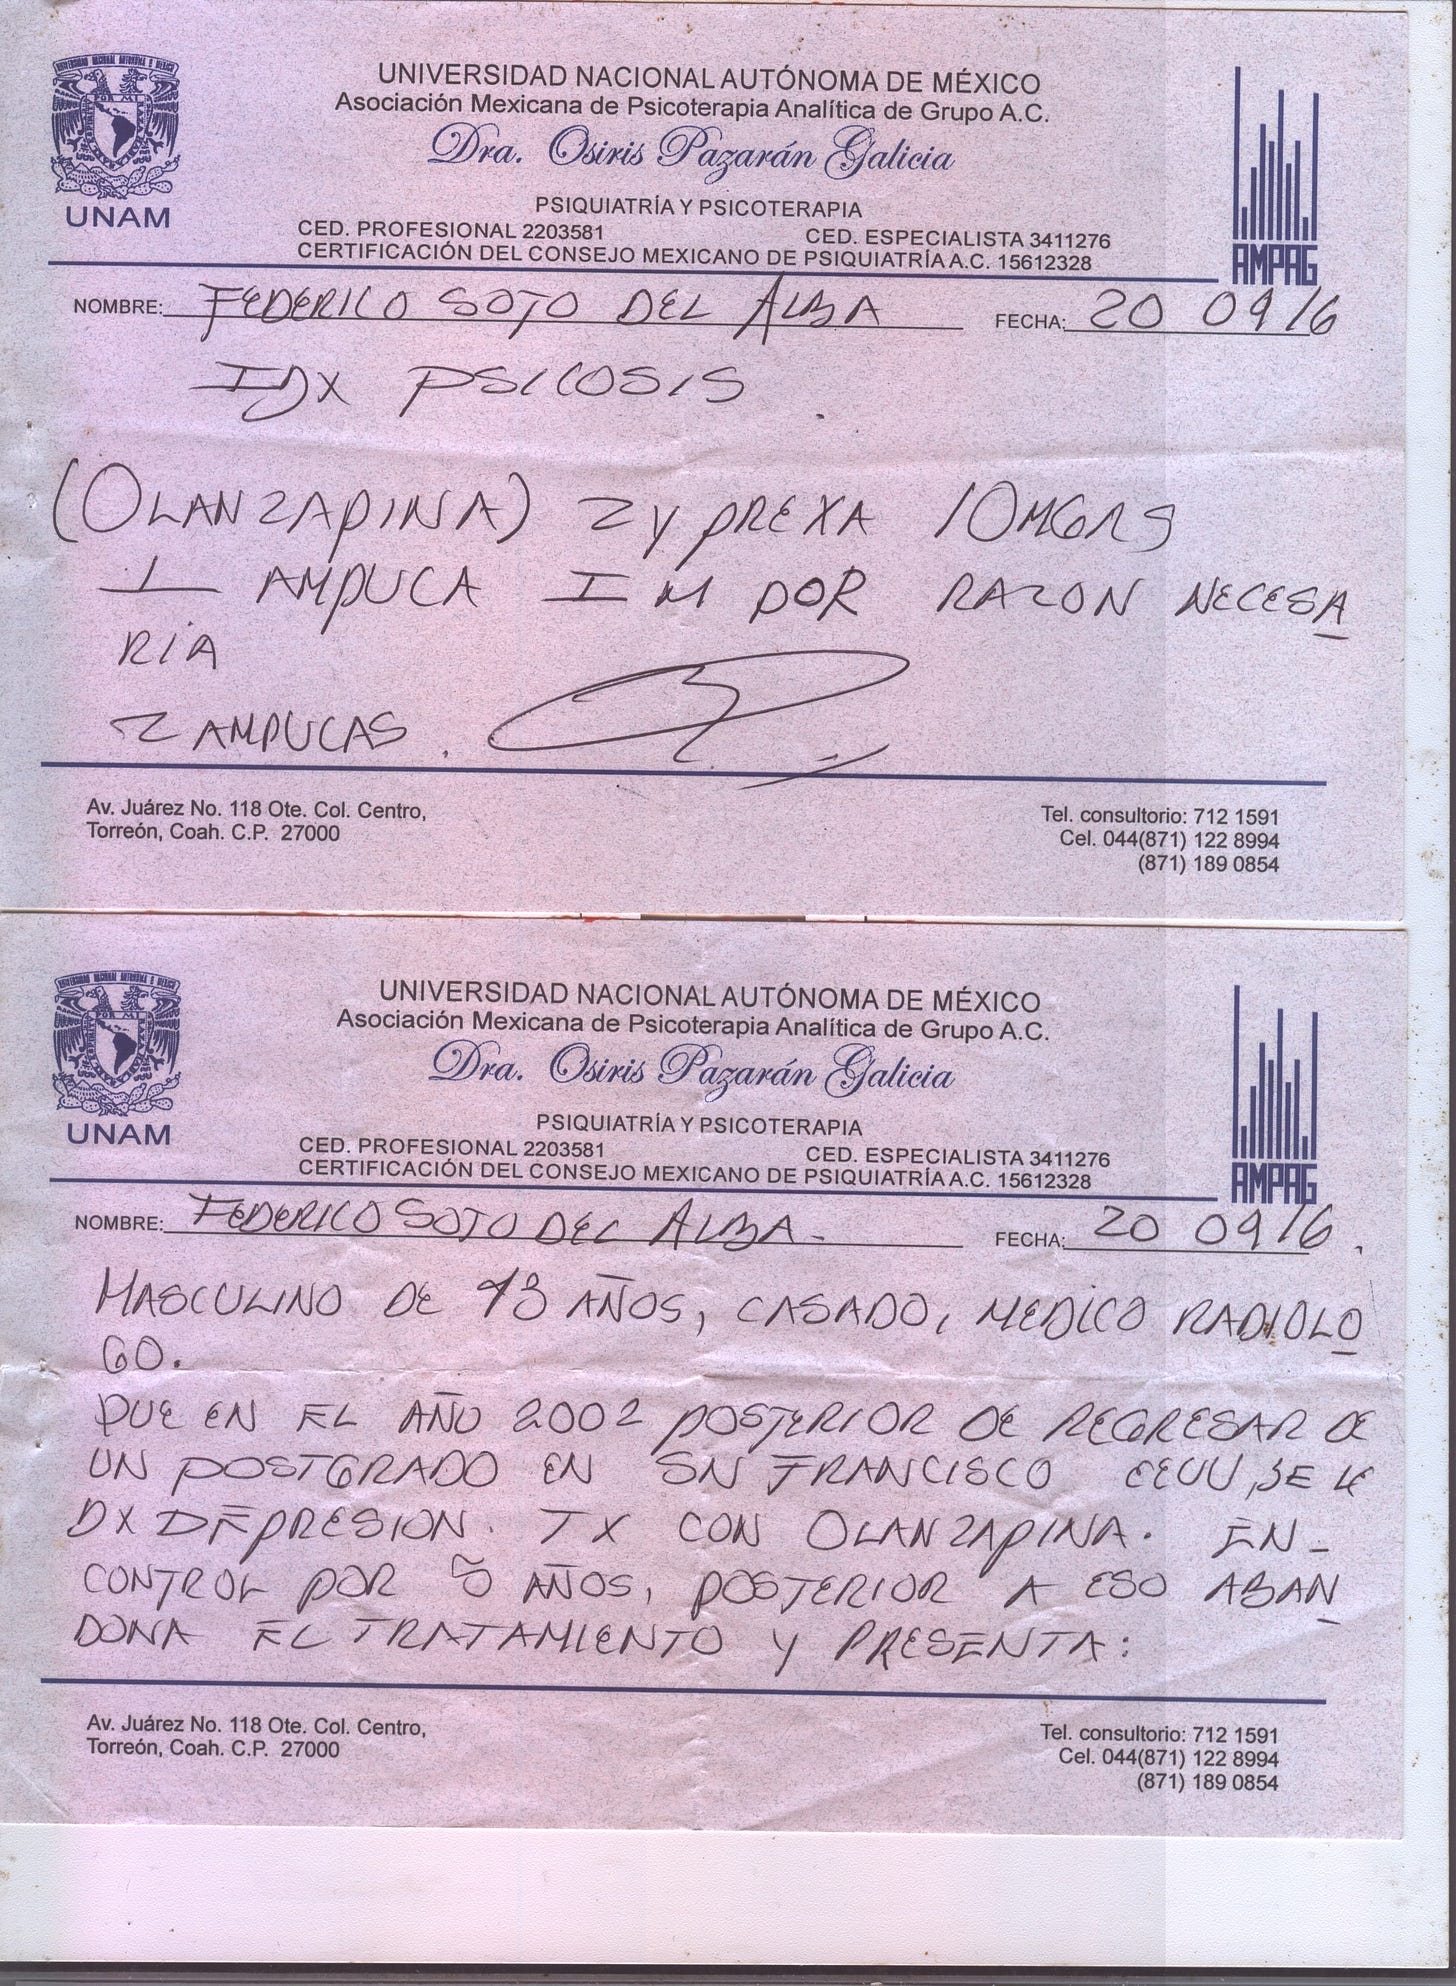 UNIVERSIDAD NACIONAL AUTÓNOMA DE MÉXICO
Asociación Mexicana de Psicoterapia Analítica de Grupo A.C.
Dra. Osiris Pazarán Galicia
PSIQUIATRÍA Y PSICOTERAPIA
CED. PROFESIONAL 2203581 CED. ESPECIALISTA 3411276
CERTIFICACIÓN DEL CONSEJO MEXICANO DE PSIQUIATRÍA A.C. 15612328
UNAM
AMPAG
NOMBRE: FEDERICO SOTO DEL ALBA FECHA: 20 09 16
IDX PSICOSIS
(OLANZAPINA) ZYPREXA 10MGRS
1 AMPULA IM POR RAZON NECESA
RIA
2 AMPULAS.
Av. Juárez No. 118 Ote. Col. Centro,
Torreón, Coah. C.P. 27000
Tel. consultorio: 712 1591
Cel. 044(871) 122 8994
(871) 189 0854
UNIVERSIDAD NACIONAL AUTÓNOMA DE MÉXICO
Asociación Mexicana de Psicoterapia Analítica de Grupo A.C.
Dra. Osiris Pazarán Galicia
PSIQUIATRÍA Y PSICOTERAPIA
CED. PROFESIONAL 2203581 CED. ESPECIALISTA 3411276
CERTIFICACIÓN DEL CONSEJO MEXICANO DE PSIQUIATRÍA A.C. 15612328
UNAM
AMPAG
NOMBRE: FEDERICO SOTO DEL ALBA. FECHA: 20 09 16.
MASCULINO DE 43 AÑOS, CASADO, MEDICO RADIOLO
GO.
QUE EN EL AÑO 2002 POSTERIOR DE REGRESAR DE
UN POSTGRADO EN SN FRANCISCO EEUU, SE LE
DX DEPRESION. TX CON OLANZAPINA. EN
CONTROL POR 5 AÑOS, POSTERIOR A ESO ABAN
DONA EL TRATAMIENTO Y PRESENTA:
Av. Juárez No. 118 Ote. Col. Centro,
Torreón, Coah. C.P. 27000
Tel. consultorio: 712 1591
Cel. 044(871) 122 8994
(871) 189 0854